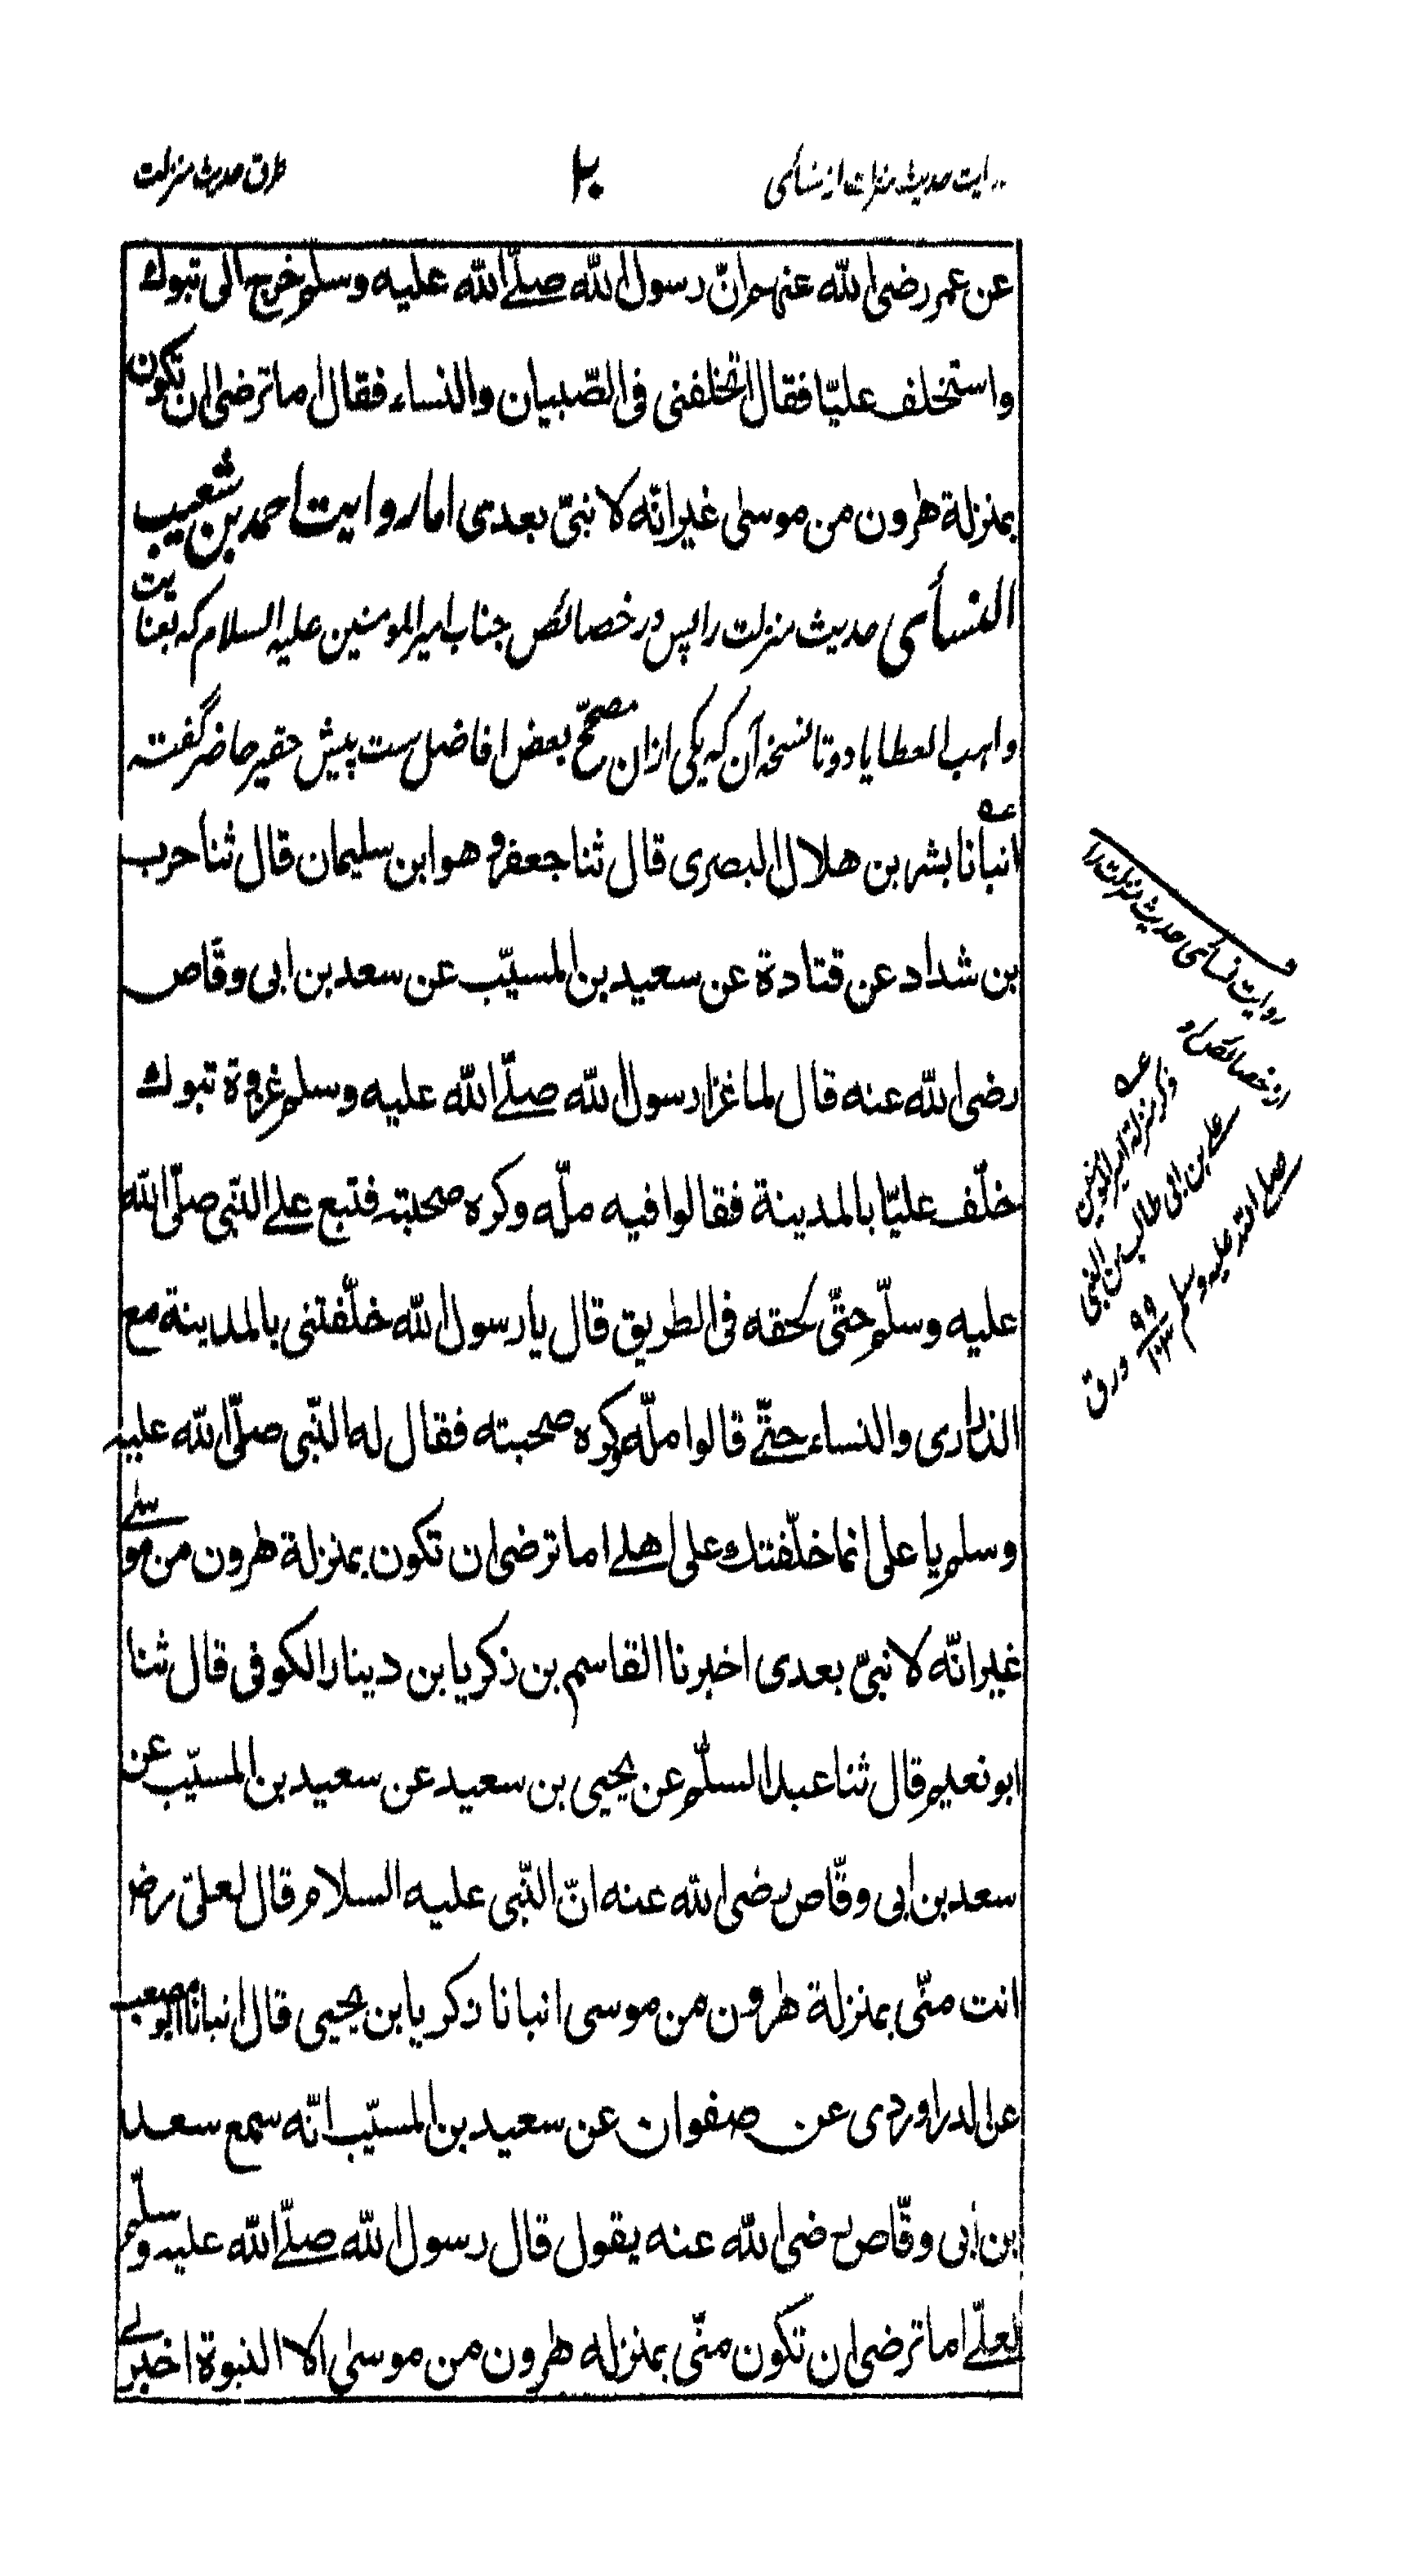 روایت حدیث منزلت از نسائی
۲۰
طرق حدیث منزلت
عن عمر رضی الله عنهم انّ رسول الله صلّے الله علیه وسلم خرج الی تبوك
واستخلف علیّا فقال اتخلفنی فی الصّبیان والنساء فقال اما ترضی ان تکون
بمنزلة هٰرون من موسیٰ غیر انّه لا نبیّ بعدی اما روایت احمد بن شعیب
النسائی حدیث منزلت را پس در خصائص جناب امیر المومنین علیه السلام که بعنایت
واهب العطایا دو تا نسخه آن که یکی ازان مصحّح بعض افاضل ست پیش حقیر حاضر گفته
انبأنا بشر بن هلال البصری قال ثنا جعفر و هو ابن سلیمان قال ثنا حرب
بن شداد عن قتادة عن سعید بن المسیّب عن سعد بن ابی وقّاص
رضی الله عنه قال لما غزا رسول الله صلّے الله علیه وسلم غزوة تبوك
خلّف علیّا بالمدینة فقالوا فیه ملّه وکره صحبته فتبع علے النّبی صلّی الله
علیه وسلّم حتّی لحقه فی الطریق قال یا رسول الله خلّفتنی بالمدینة مع
الذراری والنساء حتّے قالوا ملّه وکره صحبته فقال له النّبی صلّی الله علیه
وسلم یا علی انما خلّفتك علی اهلے اما ترضی ان تکون بمنزلة هٰرون من موسے
غیر انّه لا نبیّ بعدی اخبرنا القاسم بن زکریا بن دینار الکوفی قال ثنا
ابو نعیم قال ثنا عبد السلٰم عن یحیی بن سعید عن سعید بن المسیّب عن
سعد بن ابی وقّاص رضی الله عنه انّ النّبی علیه السلام قال لعلیّ رض
انت منّی بمنزلة هٰرون من موسی انبانا زکریا بن یحیی قال انبانا ابو مصعب
عن الدراوردی عن صفوان عن سعید بن المسیّب انّه سمع سعد
بن ابی وقّاص رضی الله عنه یقول قال رسول الله صلّے الله علیه وسلّم
لعلیّ اما ترضی ان تکون منّی بمنزله هٰرون من موسیٰ الا النبوة اخبرنے
روایت نسائی حدیث منزلت را
در خصائص او
عــه
ذکر منزلة امیر المومنین
علے بن ابی طالب من النبی
صلے الله علیه وسلم
ورق